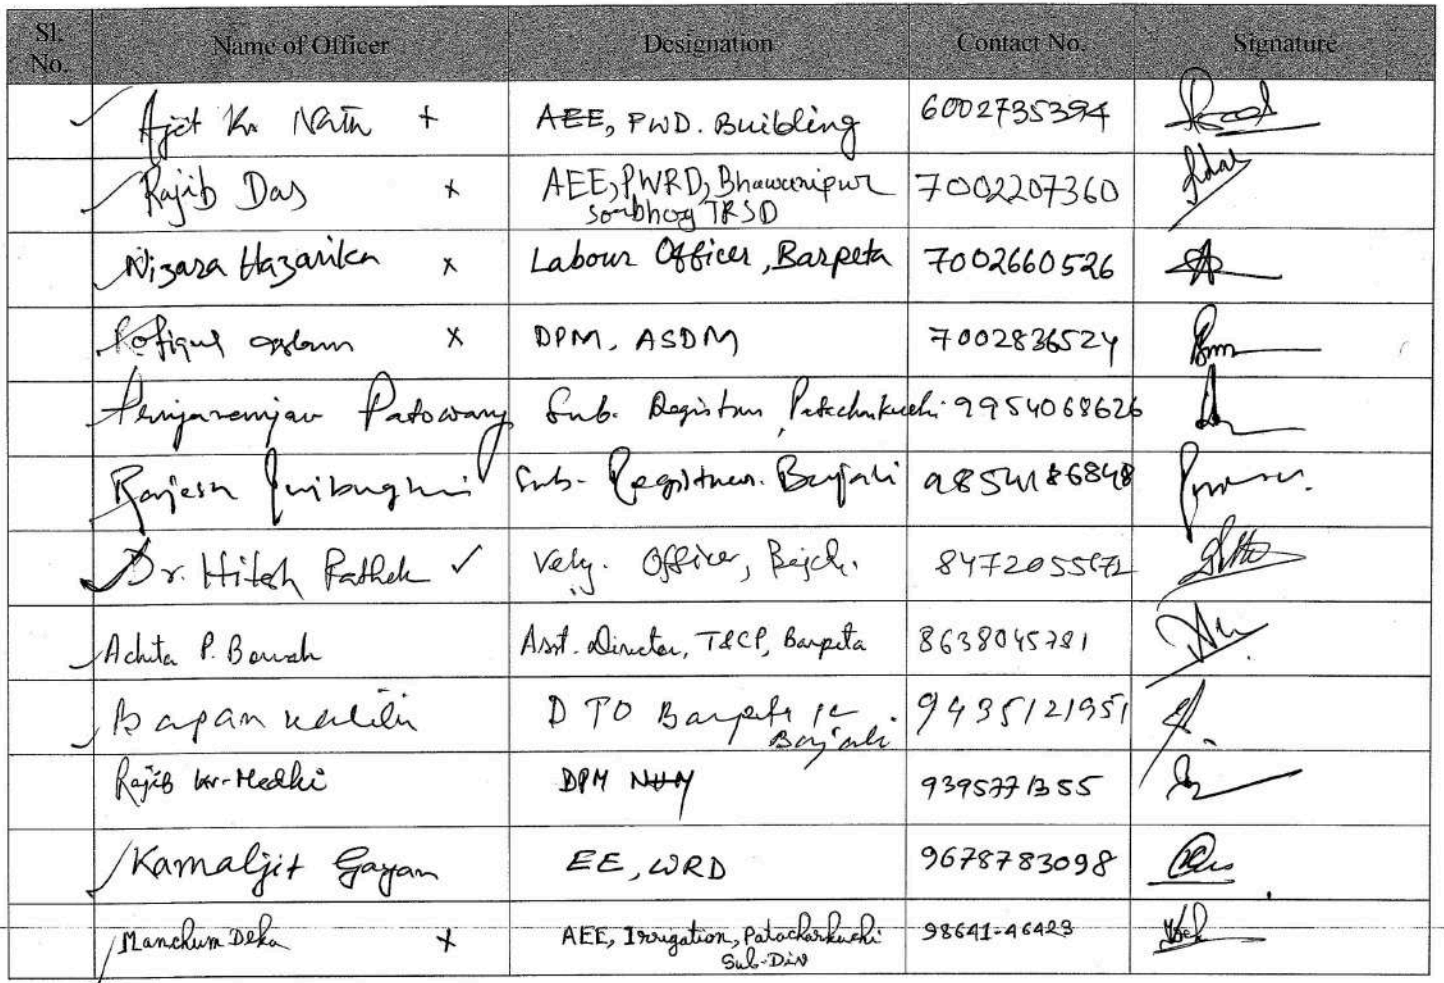 Sl. No. Name of Officer Designation Contact No. Signature
Ajit Kr Nath + AEE, PWD. Building 6002735394
Rajib Das x AEE, PWRD, Bhawanipur 7002207360
Sorbhog TRSD
Nizara Hazarika x Labour Officer, Barpeta 7002660526
Rofiqul Islam x DPM, ASDM 7002836524
Patowary Sub. Registrar, Patacharkuchi 9954068626
Rajesh Sub- Registrar. Bajali
Dr. Hitesh Pathak ✓ Officer,
Achita P. Baruah Asst. Director, T&CP, Barpeta 8638045781
Bapan DTO Barpeta 9435121951
Bajali
Rajib Kr. Medhi DPM 9395771355
Kamaljit Gayan EE, WRD 9678783098
Manchum Deka x AEE, Irrigation, Patacharkuchi 98641-46423
Sub-Div